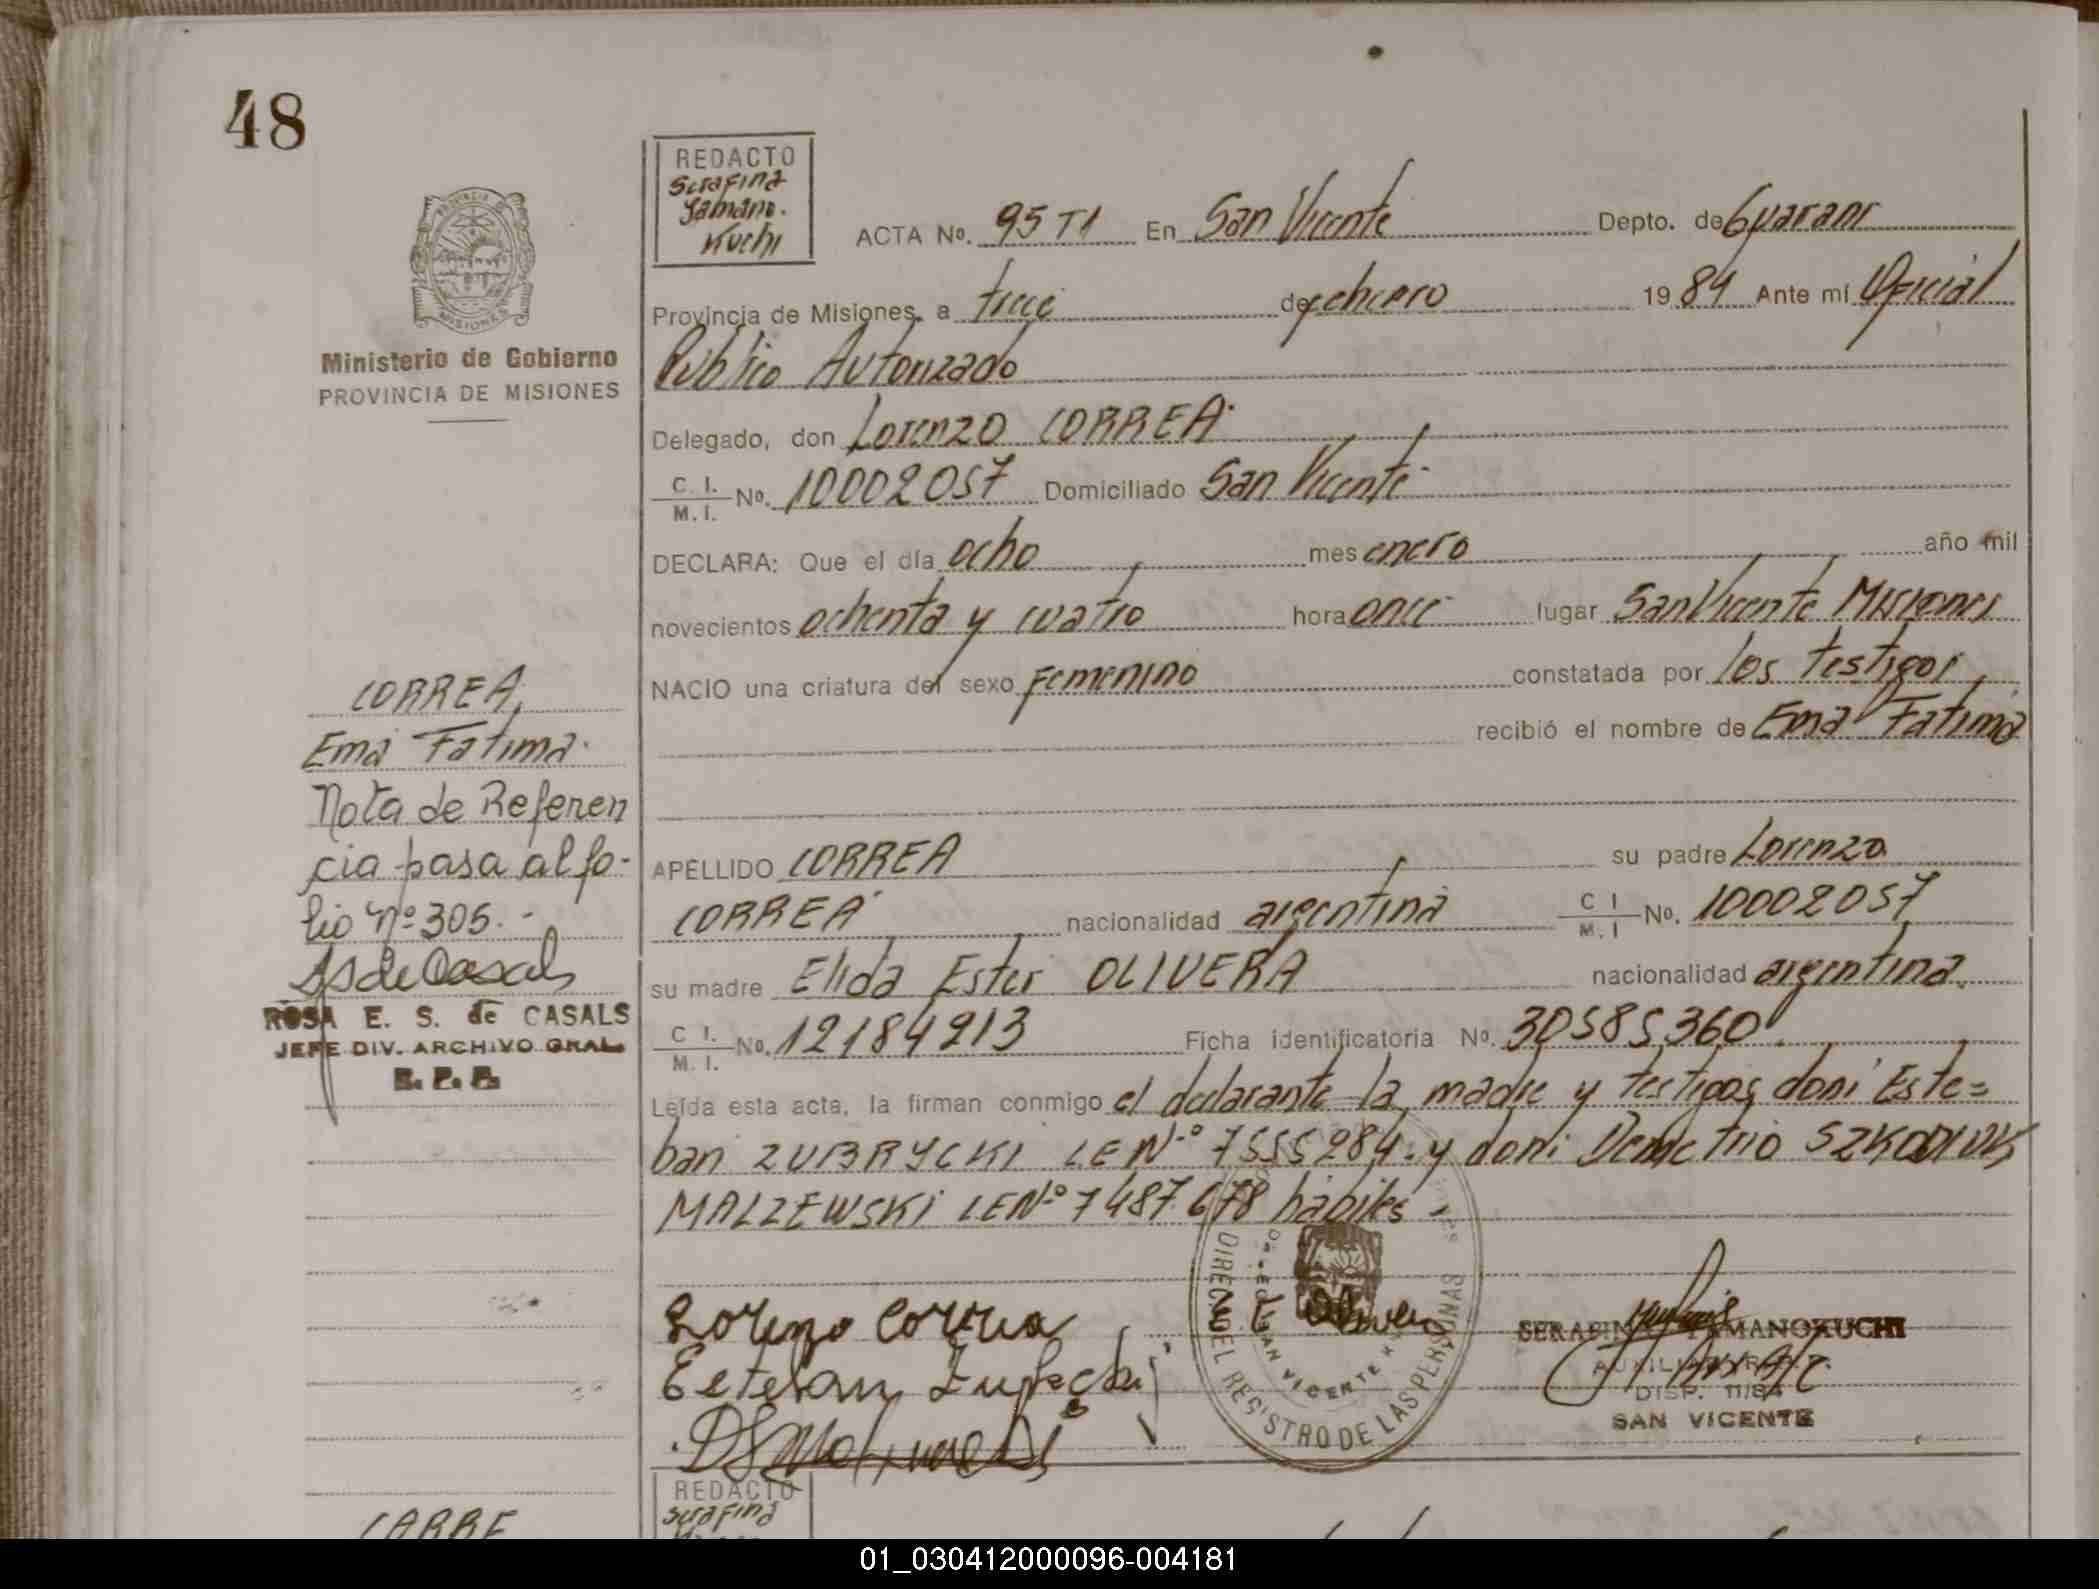 48
REDACTO
Serafina
Yamano.
Kuchi
ACTA No. 95 T1 En San Vicente Depto. de Guarani
Provincia de Misiones, a trece de febrero 1984 Ante mí Oficial
Público Autorizado
Delegado, don Lorenzo CORREA
C. I. / M. I. No. 10002057 Domiciliado San Vicente
DECLARA: Que el día ocho mes enero año mil
novecientos ochenta y cuatro hora once lugar San Vicente Misiones
NACIO una criatura del sexo Femenino constatada por los testigos
recibió el nombre de Ema Fatima
APELLIDO CORREA su padre Lorenzo
CORREA nacionalidad argentina C I / M. I No. 10002057
su madre Elida Ester OLIVERA nacionalidad argentina.
C I. / M. I. No. 12184213 Ficha identificatoria No. 30585360.
Leída esta acta, la firman conmigo el declarante la madre y testigos don: Este=
ban ZUBRYCKI LE Nº 7555284. y don: Demetrio
MALZEWSKI LE Nº 7487.678 hábiles.-
PROVINCIA DE
MISIONES
Ministerio de Gobierno
PROVINCIA DE MISIONES
CORREA,
Ema Fatima.
Nota de Referen
cia pasa al fo-
lio Nº 305.-
ROSA E. S. de CASALS
JEFE DIV. ARCHIVO GRAL.
R. P. P.
Lorenzo Correa
E Olivera
Esteban
DIREC. DEL REGISTRO DE LAS PERSONAS
SAN VICENTE
SERAFINA YAMANOKUCHI
DISP. 11/84
SAN VICENTE
REDACTO
Serafina
01_030412000096-004181